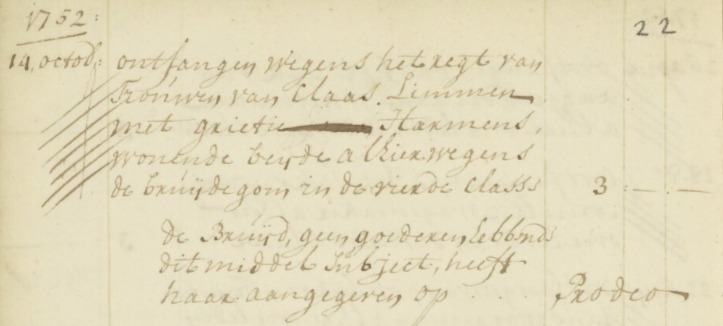 1752:
22
14, octob:: ontfangen wegens het regt van
Trouwen van Claas. Limmen
met grietie Harmens,
wonende beyde alhier. wegens
de bruijdegom in de vierde Classe 3 : — . —
de Bruijd, geen goederen hebbende
dit middel Subject, heeft
haar aangegeven op Prodeo